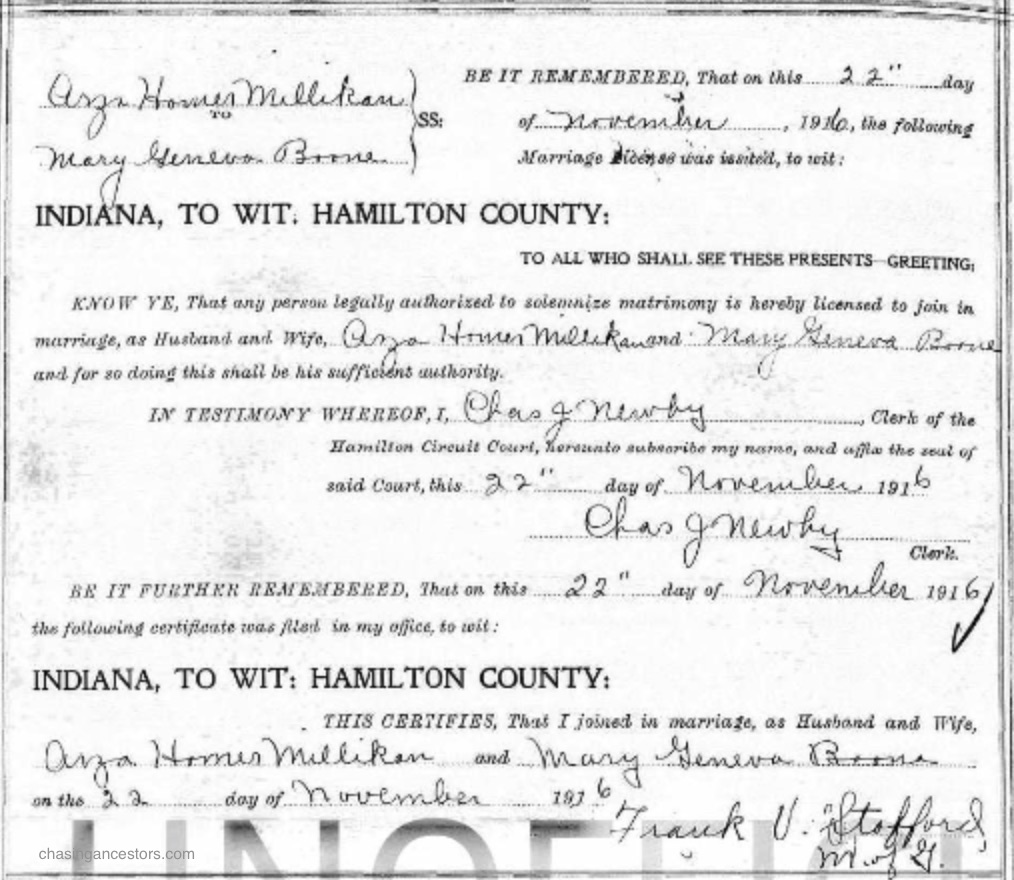 Arza Homer Millikan
TO
Mary Geneva Boone
SS:
BE IT REMEMBERED, That on this 22" day
of November, 1916, the following
Marriage License was issued, to wit:
INDIANA, TO WIT: HAMILTON COUNTY:
TO ALL WHO SHALL SEE THESE PRESENTS—GREETING:
KNOW YE, That any person legally authorized to solemnize matrimony is hereby licensed to join in
marriage, as Husband and Wife, Arza Homer Millikan and Mary Geneva Boone
and for so doing this shall be his sufficient authority.
IN TESTIMONY WHEREOF, I, Chas J Newby, Clerk of the
Hamilton Circuit Court, hereunto subscribe my name, and affix the seal of
said Court, this 22" day of November 1916
Chas J Newby
Clerk.
BE IT FURTHER REMEMBERED, That on this 22" day of November 1916
the following certificate was filed in my office, to wit:
INDIANA, TO WIT: HAMILTON COUNTY:
THIS CERTIFIES, That I joined in marriage, as Husband and Wife,
Arza Homer Millikan and Mary Geneva Boone
on the 22 day of November 1916
Frank V. Stafford,
M. of G.
chasingancestors.com